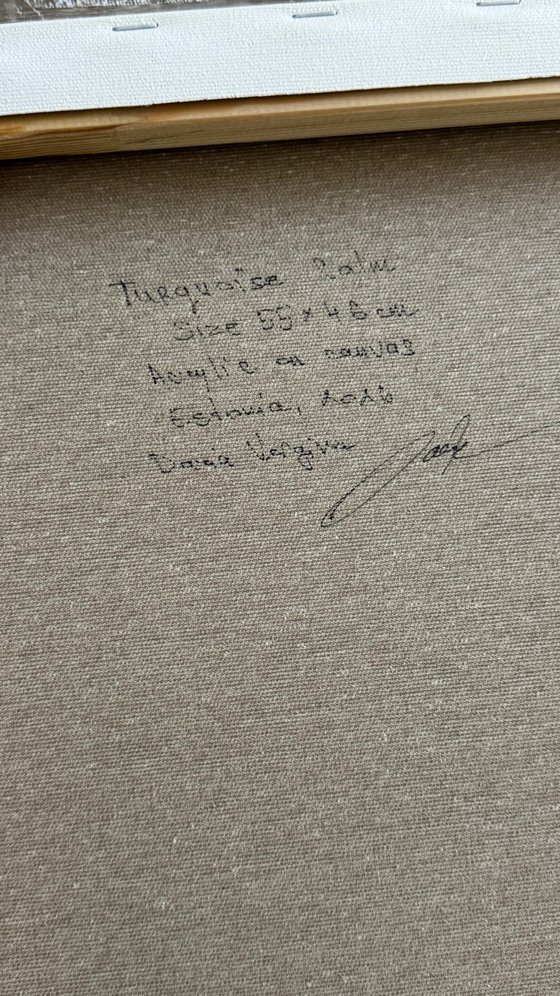 Turquoise Calm
Size 55 x 46 cm
Acrylic on canvas
Estonia, 2026
Daria